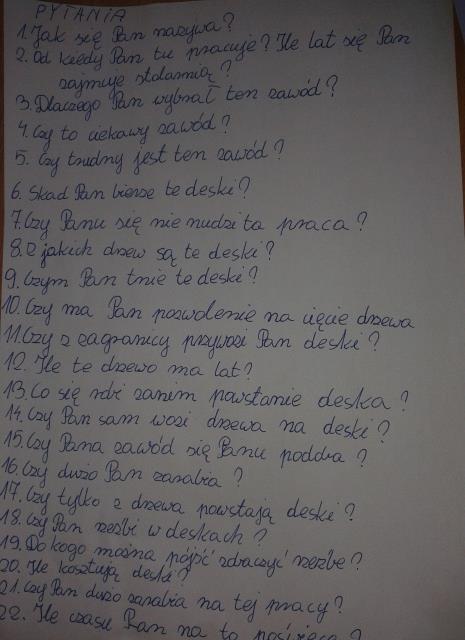 PYTANIA
1. Jak się Pan nazywa?
2. Od kiedy Pan tu pracuje? Ile lat się Pan
zajmuje stolarnią?
3. Dlaczego Pan wybrał ten zawód?
4. Czy to ciekawy zawód?
5. Czy trudny jest ten zawód?
6. Skad Pan bierze te deski?
7. Czy Panu się nie nudzi ta praca?
8. Z jakich drzew są te deski?
9. Czym Pan tnie te deski?
10. Czy ma Pan pozwolenie na cięcie drzewa
11. Czy z zagranicy przywozi Pan deski?
12. Ile te drzewo ma lat?
13. Co się robi zanim powstanie deska?
14. Czy Pan sam wozi drzewa na deski?
15. Czy Pana zawód się Panu podoba?
16. Czy dużo Pan zarabia?
17. Czy tylko z drzewa powstają deski?
18. Czy Pan rzeźbi w deskach?
19. Do kogo można pójść zobaczyć rzeźbe?
20. Ile kosztują deski?
21. Czy Pan dużo zarabia na tej pracy?
22. Ile czasu Pan na to poświęca?